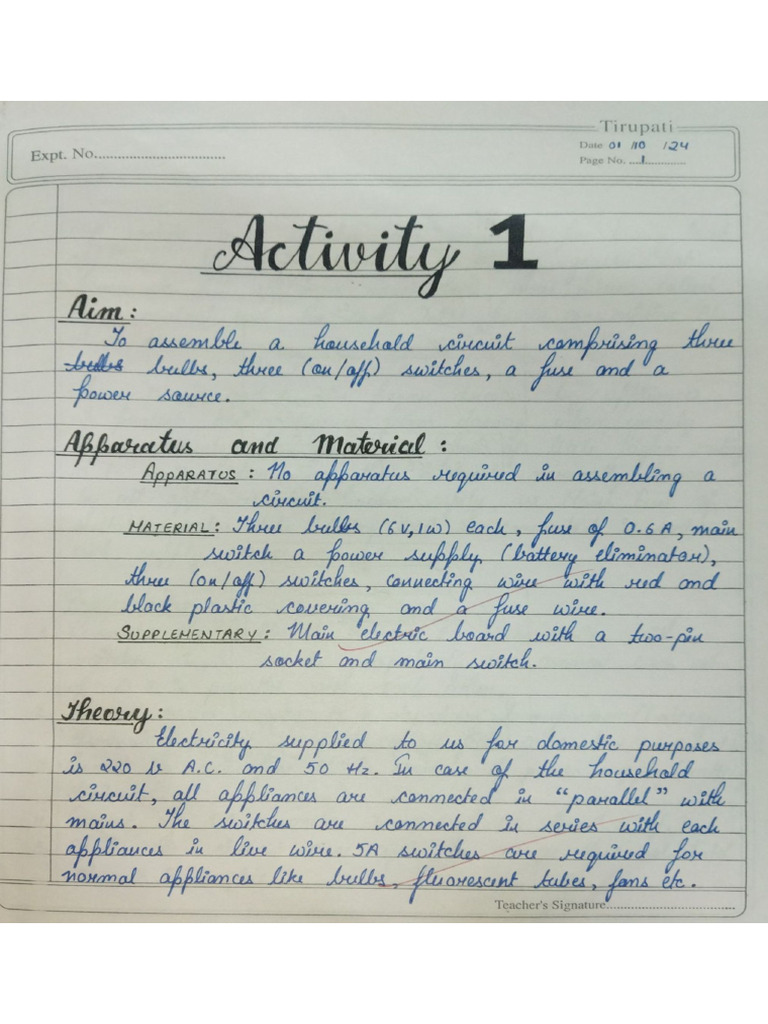 Tirupati
Expt. No................................. Date 01/10/24
Page No. ...1............
Activity 1
Aim:
To assemble a household circuit comprising three
bulbs bulbs, three (on/off) switches, a fuse and a
power source.
Apparatus and Material:
APPARATUS: No apparatus required in assembling a
circuit.
MATERIAL: Three bulbs (6V,1W) each, fuse of 0.6A, main
switch a power supply (battery eliminator),
three (on/off) switches, connecting wire with red and
black plastic covering and a fuse wire.
SUPPLEMENTARY: Main electric board with a two-pin
socket and main switch.
Theory:
Electricity supplied to us for domestic purposes
is 220 v A.C. and 50 Hz. In case of the household
circuit, all appliances are connected in "parallel" with
mains. The switches are connected in series with each
appliances in live wire. 5A switches are required for
normal appliances like bulbs, fluorescent tubes, fans etc.
Teacher's Signature................................